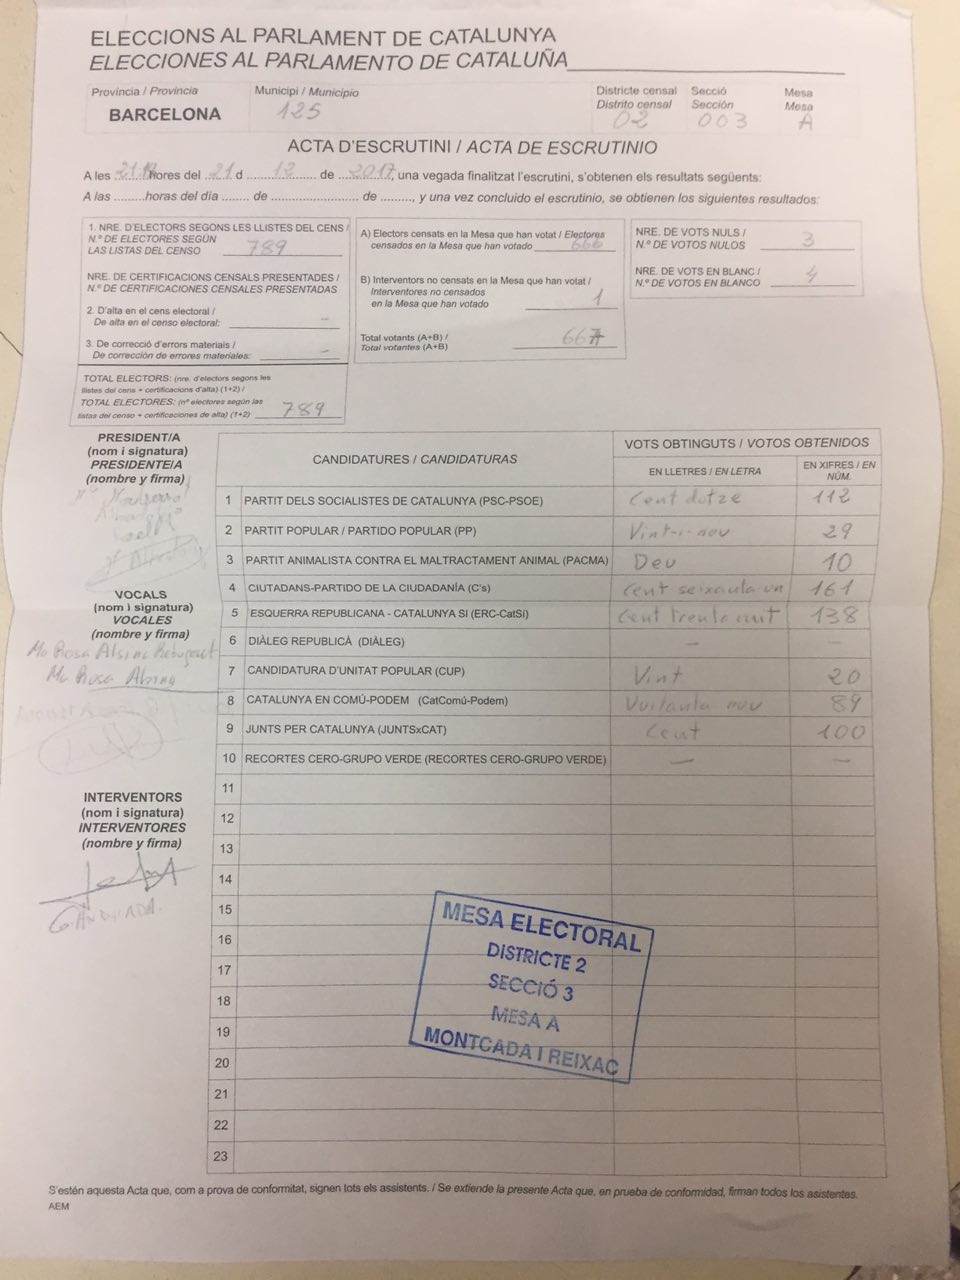 ELECCIONS AL PARLAMENT DE CATALUNYA
ELECCIONES AL PARLAMENTO DE CATALUÑA
Província / Provincia
BARCELONA
Municipi / Municipio
125
Districte censal
Distrito censal
02
Secció
Sección
003
Mesa
Mesa
A
ACTA D'ESCRUTINI / ACTA DE ESCRUTINIO
A les hores del 21 d 12 de 2017, una vegada finalitzat l'escrutini, s'obtenen els resultats següents:
A las .........horas del día ....... de ........................... de ........, y una vez concluido el escrutinio, se obtienen los siguientes resultados:
1. NRE. D'ELECTORS SEGONS LES LLISTES DEL CENS /
N.º DE ELECTORES SEGÚN
LAS LISTAS DEL CENSO 789
NRE. DE CERTIFICACIONS CENSALS PRESENTADES /
N.º DE CERTIFICACIONES CENSALES PRESENTADAS
2. D'alta en el cens electoral /
De alta en el censo electoral: –
3. De correcció d'errors materials /
De corrección de errores materiales: –
TOTAL ELECTORS: (nre. d'electors segons les
llistes del cens + certificacions d'alta) (1+2) /
TOTAL ELECTORES: (nº electores según las
listas del censo + certificaciones de alta) (1+2) 789
A) Electors censats en la Mesa que han votat / Electores
censados en la Mesa que han votado 666
B) Interventors no censats en la Mesa que han votat /
Interventores no censados
en la Mesa que han votado 1
Total votants (A+B) /
Total votantes (A+B) 667
NRE. DE VOTS NULS /
N.º DE VOTOS NULOS 3
NRE. DE VOTS EN BLANC /
N.º DE VOTOS EN BLANCO 4
PRESIDENT/A
(nom i signatura)
PRESIDENTE/A
(nombre y firma)
VOCALS
(nom i signatura)
VOCALES
(nombre y firma)
Mª Rosa Alsina
Mª Rosa Alsina
INTERVENTORS
(nom i signatura)
INTERVENTORES
(nombre y firma)
CANDIDATURES / CANDIDATURAS
VOTS OBTINGUTS / VOTOS OBTENIDOS
EN LLETRES / EN LETRA
EN XIFRES / EN NÚM.
1 PARTIT DELS SOCIALISTES DE CATALUNYA (PSC-PSOE) Cent dotze 112
2 PARTIT POPULAR / PARTIDO POPULAR (PP) Vint-i-nou 29
3 PARTIT ANIMALISTA CONTRA EL MALTRACTAMENT ANIMAL (PACMA) Deu 10
4 CIUTADANS-PARTIDO DE LA CIUDADANÍA (C's) Cent seixanta un 161
5 ESQUERRA REPUBLICANA - CATALUNYA SI (ERC-CatSí) Cent trenta vuit 138
6 DIÀLEG REPUBLICÀ (DIÀLEG) – –
7 CANDIDATURA D'UNITAT POPULAR (CUP) Vint 20
8 CATALUNYA EN COMÚ-PODEM (CatComú-Podem) Vuitanta nou 89
9 JUNTS PER CATALUNYA (JUNTSxCAT) Cent 100
10 RECORTES CERO-GRUPO VERDE (RECORTES CERO-GRUPO VERDE) – –
11
12
13
14
15
16
17
18
19
20
21
22
23
MESA ELECTORAL
DISTRICTE 2
SECCIÓ 3
MESA A
MONTCADA I REIXAC
S'estén aquesta Acta que, com a prova de conformitat, signen tots els assistents. / Se extiende la presente Acta que, en prueba de conformidad, firman todos los asistentes.
AEM